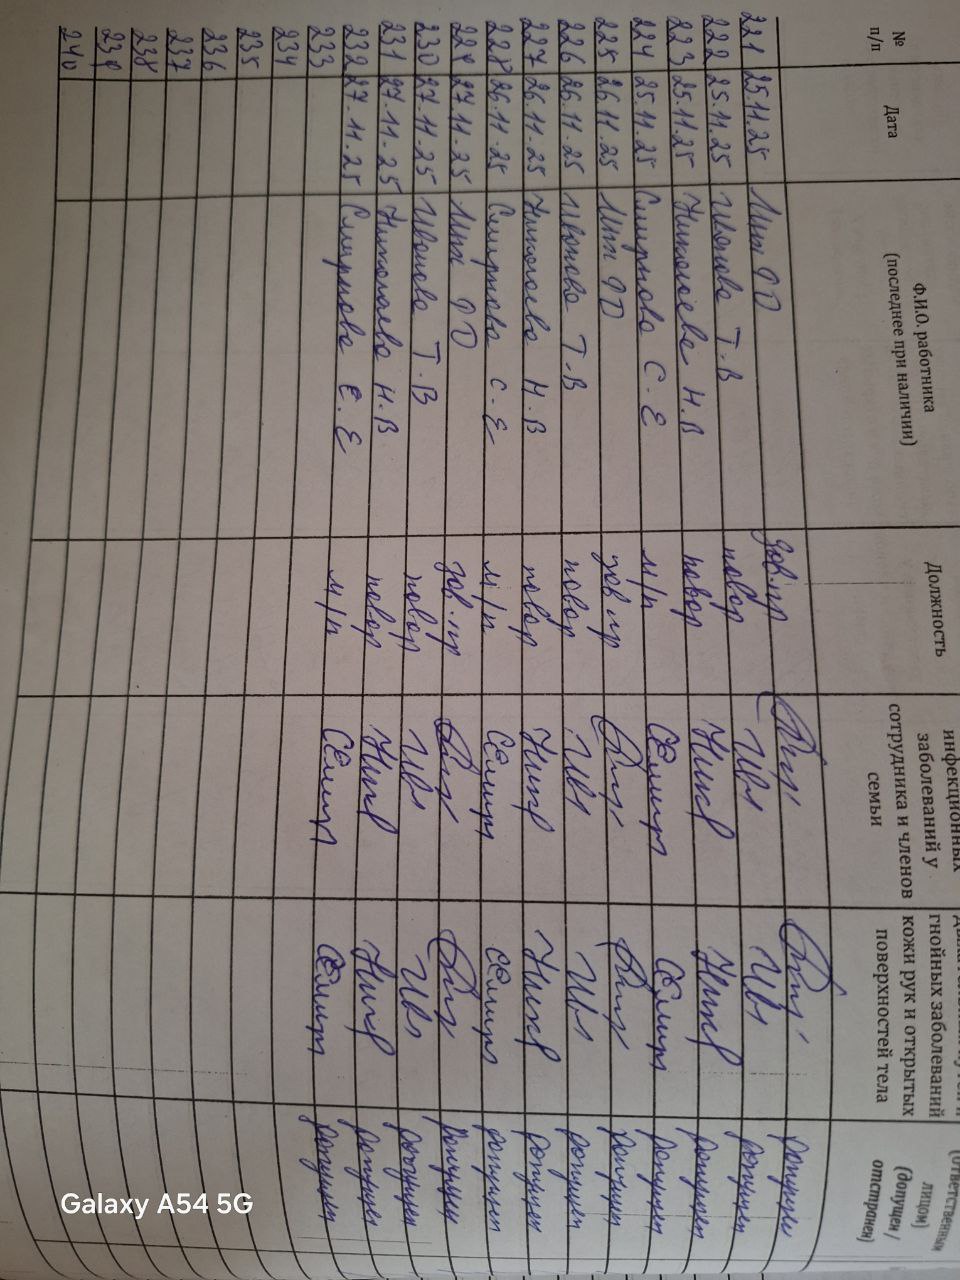 № п/п
Дата
Ф.И.О. работника
(последнее при наличии)
Должность
инфекционных
заболеваний у
сотрудника и членов
семьи
гнойных заболеваний
кожи рук и открытых
поверхностей тела
(ответственным
лицом)
(допущен /
отстранен)
221 25.11.25 зав.пр допущен
222 25.11.25 Иванова Т.В повар Ив допущен
223 25.11.25 Николаева Н.В повар Ник допущен
224 25.11.25 Смирнова С.Е м/п допущен
225 26.11.25 зав.пр допущен
226 26.11.25 Иванова Т.В повар Ив допущен
227 26.11.25 Николаева Н.В повар Ник допущен
228 26.11.25 Смирнова С.Е м/п допущен
229 27.11.25 зав.пр допущен
230 27.11.25 Иванова Т.В повар Ив допущен
231 27.11.25 Николаева Н.В повар Ник допущен
232 27.11.25 Смирнова С.Е м/п допущен
233
234
235
236
237
238
239
240
Galaxy A54 5G